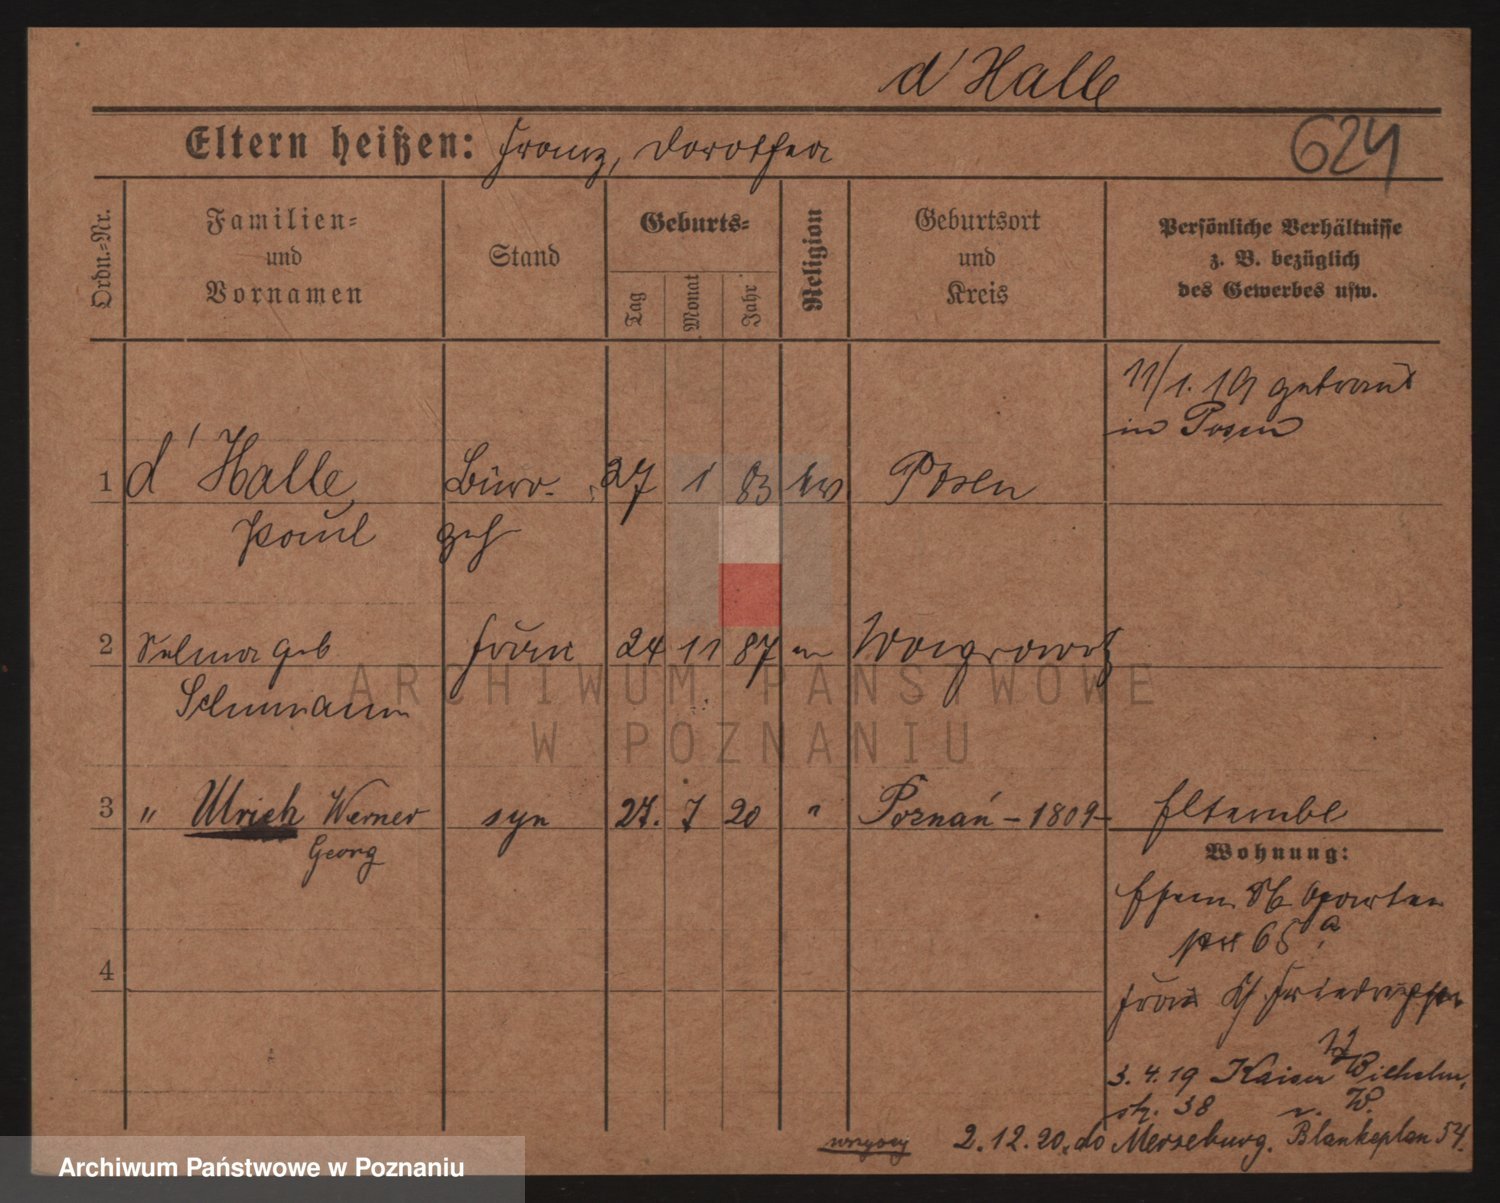 d'Halle
Eltern heißen: Franz, Dorothea
624
Ordn.=Nr.
Familien=
und
Vornamen
Stand
Geburts=
Tag
Monat
Jahr
Religion
Geburtsort
und
Kreis
Persönliche Verhältnisse
z. B. bezüglich
des Gewerbes usw.
11/1. 19 getraut
in Posen
1 d'Halle, Büro- 27 1 83 Posen
Paul geh
2 Selma geb Frau 24 11 87 Wongrowitz
Schumann
3 " Ulrich Werner syn 27. 7 20 " Poznań - 1809-
Georg
Wohnung:
4
65 a
Frau
3.4.19 Kaiser Wilhelm
str. 38
2.12.20. do Merseburg. 54.
ARCHIWUM PAŃSTWOWE
W POZNANIU
Archiwum Państwowe w Poznaniu